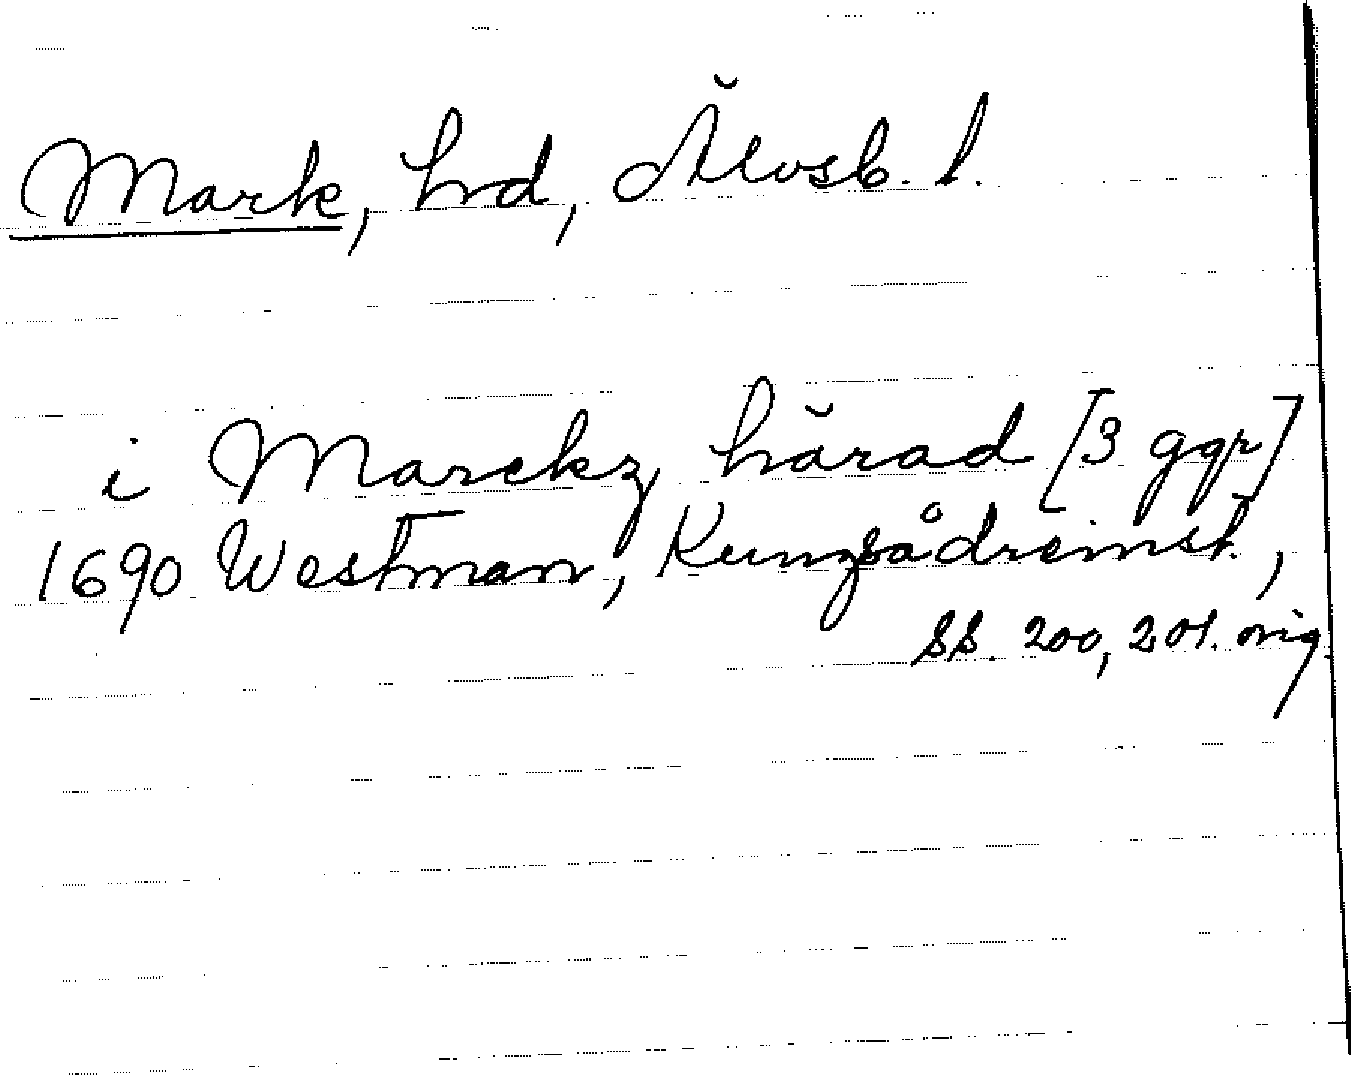 Mark, hrd, Älvsb. l.
i Marckz härad [3 ggr]
1690 Westman, Kungsådreinst.,
ss. 200, 201. orig.